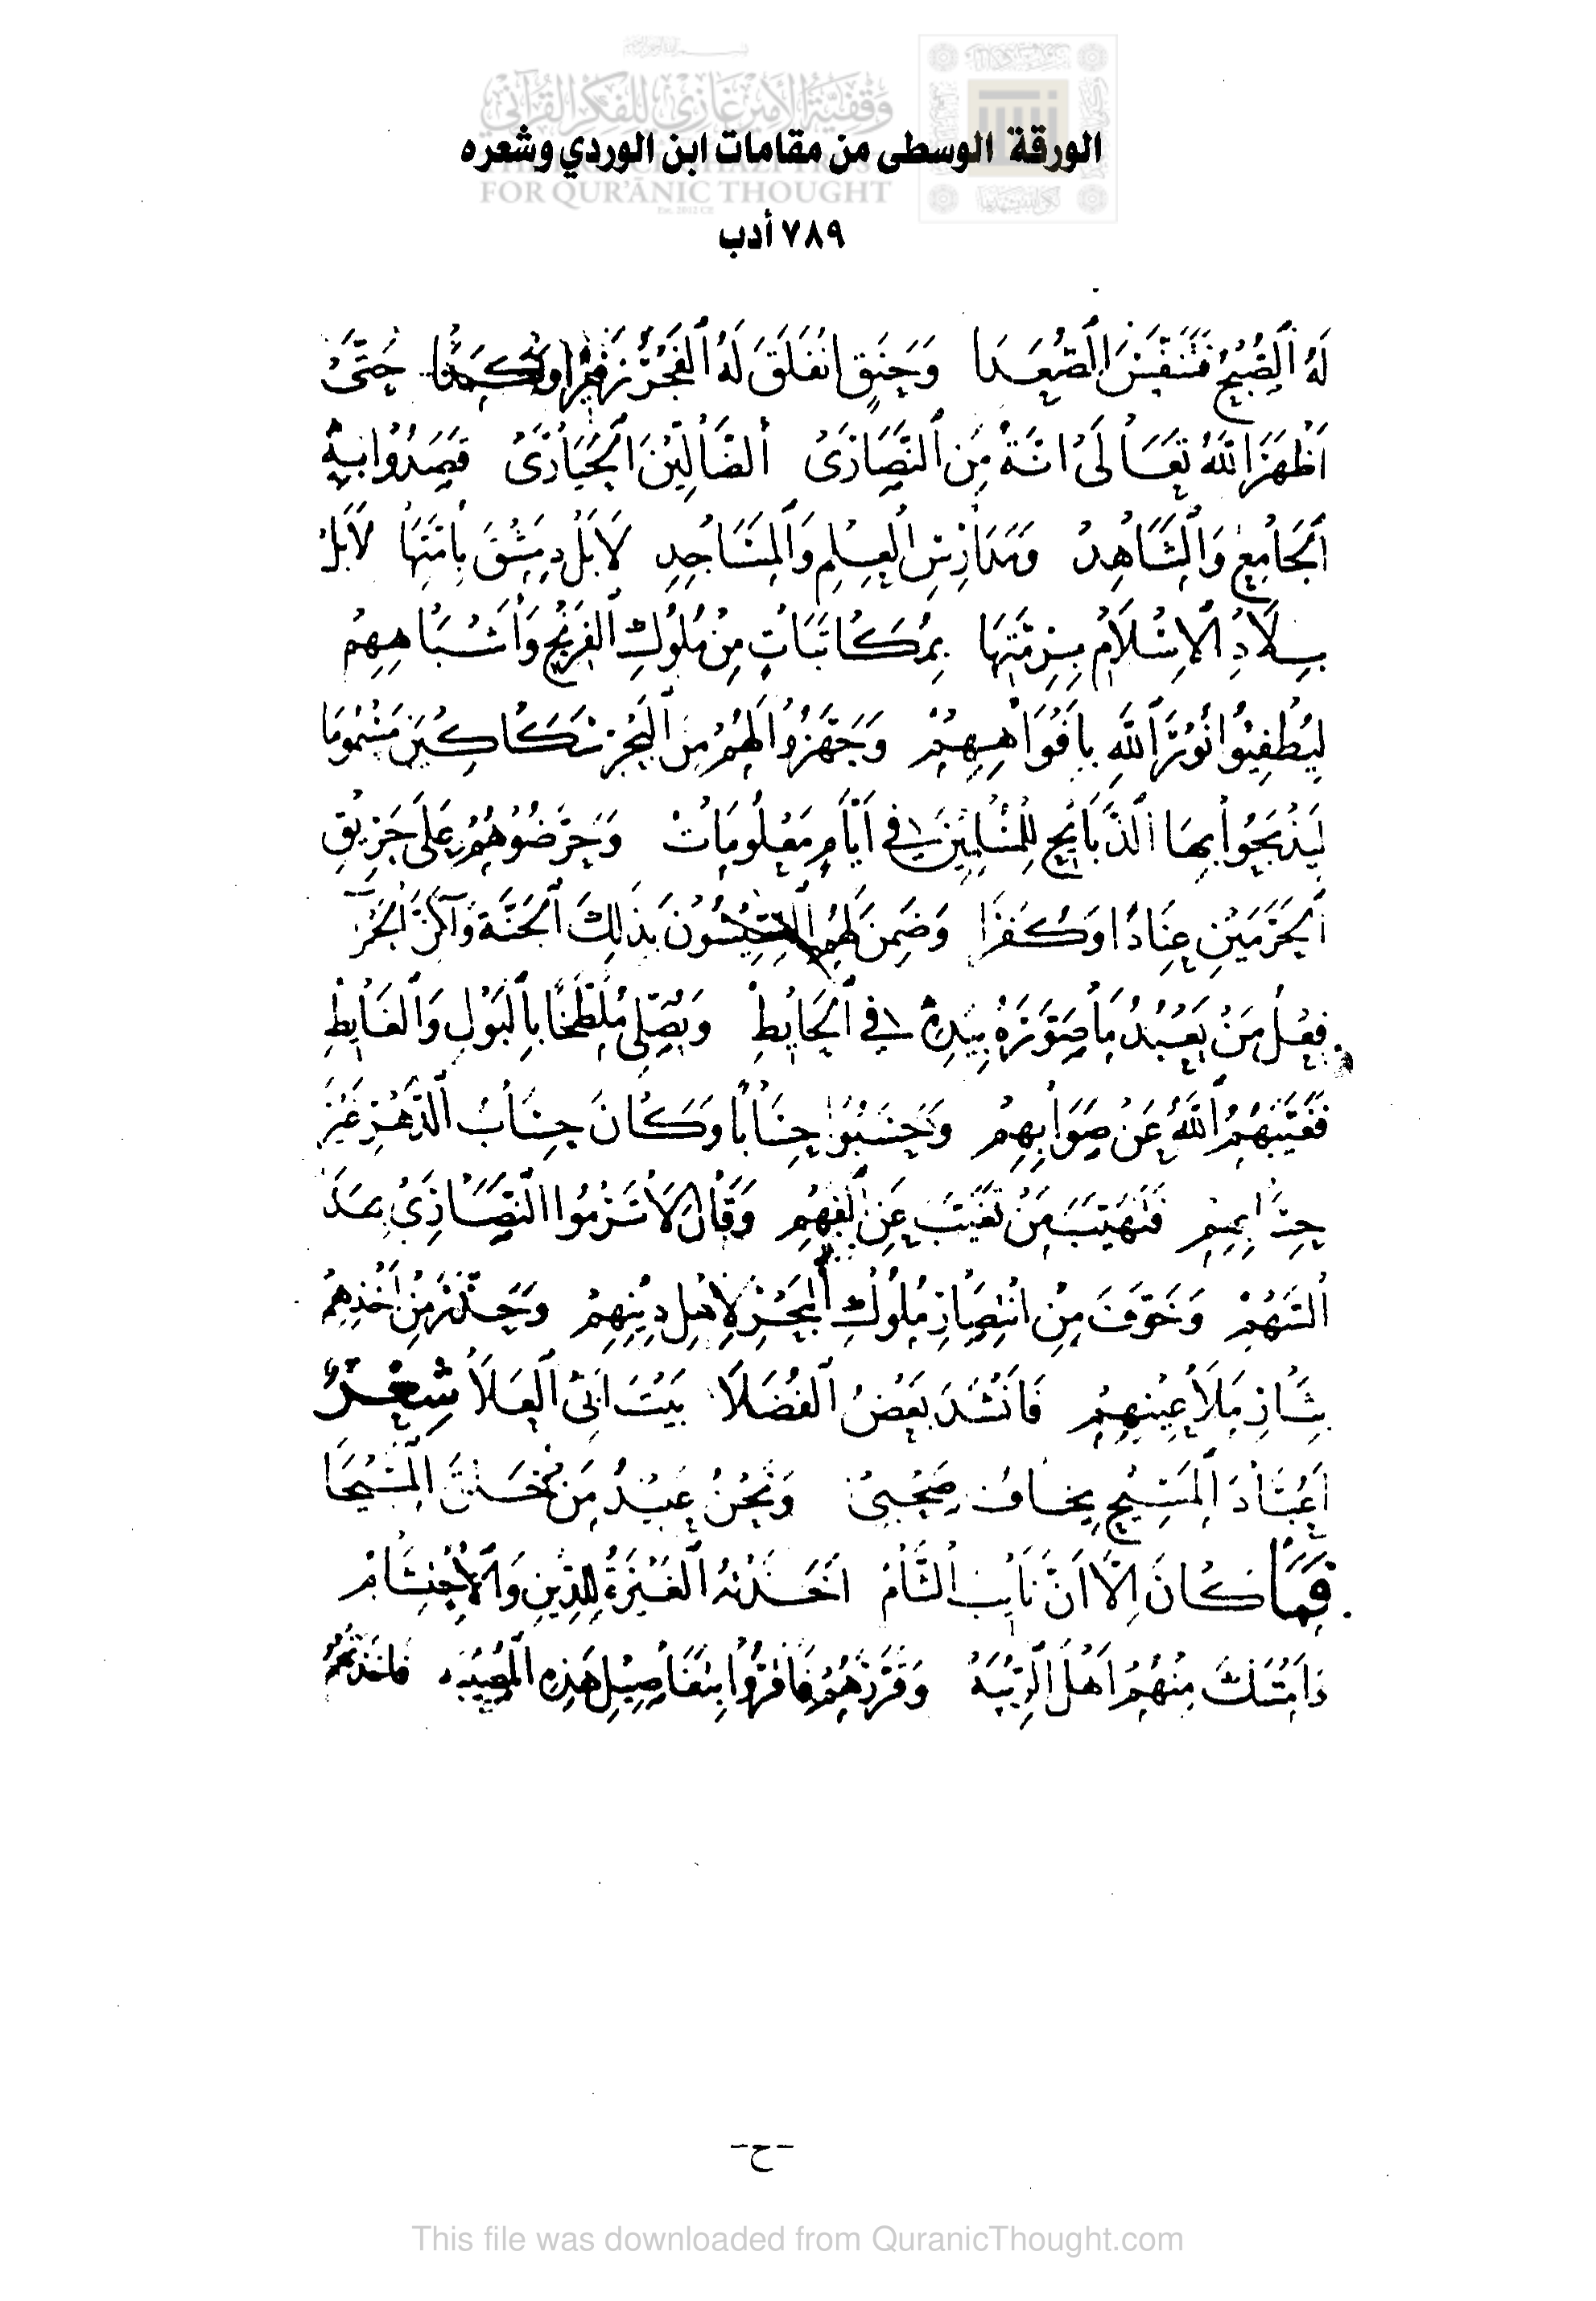 وقفية الأمير غازي للفكر القرآني
FOR QUR'ĀNIC THOUGHT
الورقة الوسطى من مقامات ابن الوردي وشعره
٧٨٩ أدب
لَهُ الصُّبْحُ فَتَنَفَّسَ الصُّعَدَا وَحَنِقَ انْفَلَقَ لَهُ الفَجْرُ حَتَّى
أَظْهَرَ اللَّهُ تَعَالَى أَنَّهُ مِنَ النَّصَارَى الضَّالِّينَ الحَيَارَى قَصَدُوا بِهِ
الجَامِعَ وَالمَشَاهِدَ وَمَدَارِسَ العِلْمِ وَالمَسَاجِدِ لَا بَلْ دِمَشْقَ بِأَمَّتِهَا لَا بَلْ
بِلَادُ الإِسْلَامِ بِرِمَّتِهَا بِمُكَاتَبَاتٍ مِنْ مُلُوكِ الفَرَنْجِ وَأَشْبَاهِهِمْ
لِيُطْفِيُوا نُورَ اللَّهِ بِأَفْوَاهِهِمْ وَجَهَّزُوا لَهُمْ مِنَ البَحْرِ سَكَاكِينَ مَسْمُومَا
لِيَذْبَحُوا بِهَا الذَّبَائِحَ لِلْمُسْلِمِينَ فِي أَيَّامٍ مَعْلُومَاتْ وَحَرَّضُوهُمْ عَلَى حَرِيقِ
الحَرَمَيْنِ عِنَادًا وَكُفْرَا وَضَمِنَ لَهُمُ القِسِّيسُونَ بِذَلِكَ الجَنَّةَ وَآكَدَ
فِعْلَ مَنْ يَعْبُدُ مَا صَوَّرَهُ بِيَدِهِ فِي الحَائِطْ وَيُصَلِّي مُلَطَّخًا بِالبَوْلِ وَالغَائِطِ
فَغَيَّبَهُمُ اللَّهُ عَنْ صَوَابِهِمْ وَحَسَبُوا حِسَابًا وَكَانَ حِسَابُ الدَّهْرِ غَيْرَ
حِسَابِهِمِ فَتَهَيَّبَ مَنْ تَغَيَّبَ عَنْ إِلْفِهِمِ وَقَالَ لَا تَرْمُوا النَّصَارَى بِهَذَ
التُّهَمْ وَخَوَّفَ مِنِ انْتِصَارِ مُلُوكِ البَحْرِ لِأَهْلِ دِينِهِمْ وَحَذَّرَ مِنْ أَخْذِهِمْ
بِثَارِ مَلَاعِينِهِمْ فَأَنْشَدَ بَعْضُ الفُضَلَا بَيْتَ أَبِي العَلَا شِعْرٌ
أَعُبَّادَ المَسِيحِ يَخَافُ صَحْبِي وَنَحْنُ عَبِيدُ مَنْ خَلَقَ المَسِيحَا
فَمَا كَانَ إِلَّا أَنَّ نَائِبَ الشَّامْ أَخَذَتْهُ الغَيْرَةُ لِلدِّينِ وَالاحْتِشَامْ
وَأَمْسَكَ مِنْهُمُ أَهْلَ الرِّيبَهْ وَقَرَّرَهُمْ فَأَقَرُّوا بِتَفَاصِيلِ هَذِهِ المُصِيبَه فَأَخَذَتْهُمْ
-ح-
This file was downloaded from QuranicThought.com